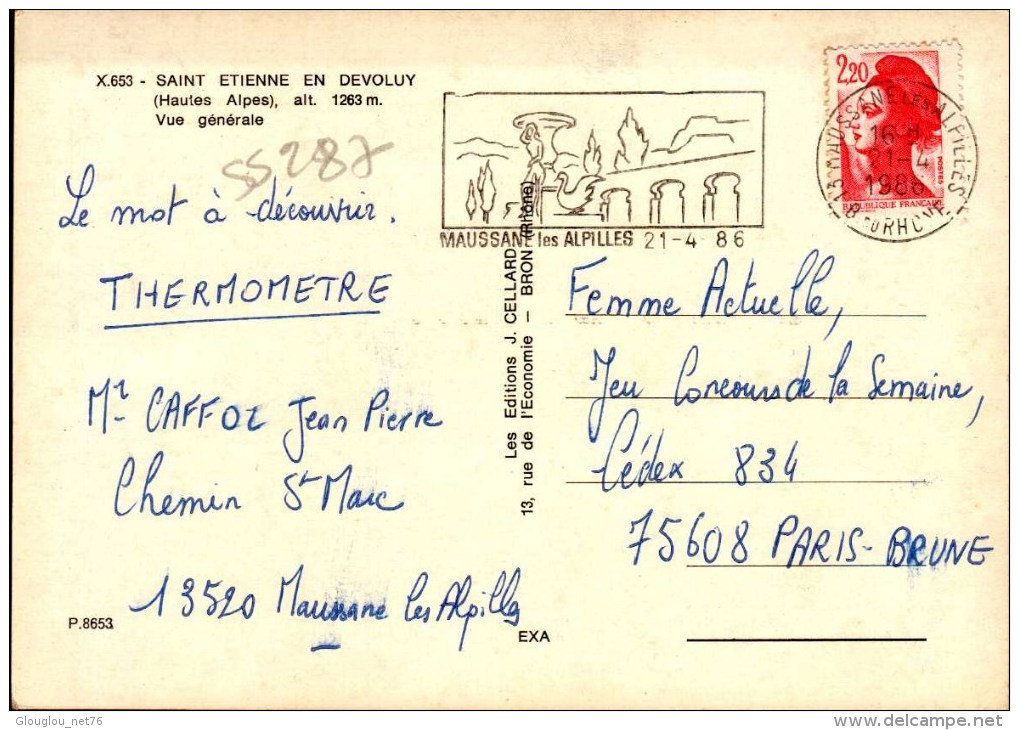 X.653 - SAINT ETIENNE EN DEVOLUY
(Hautes Alpes), alt. 1263 m.
Vue générale
55287
Le mot à découvrir.
THERMOMETRE
Mr CAFFOZ Jean Pierre
Chemin St Marc
13520 Maussane les Alpilles
P.8653
EXA
Les Editions J. CELLARD
13, rue de l'Economie — BRON (Rhône)
MAUSSANE les ALPILLES 21-4 86
2,20
POSTES
REPUBLIQUE FRANCAISE
13 MAUSSANE LES ALPILLES
16 H
21-4
1986
B. DU RHONE
Femme Actuelle,
Jeu Concours de la Semaine,
Cédex 834
75608 PARIS-BRUNE
Glouglou_net76
www.delcampe.net